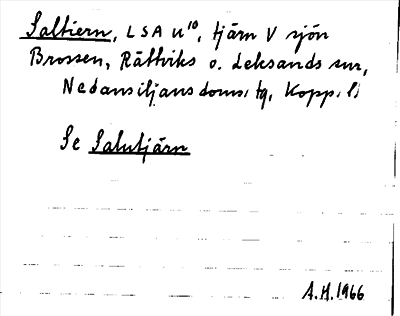 Saltiern, LSA U¹⁰, tjärn V sjön
Brossen, Rättviks o. Leksands snr,
Nedansiljans doms. tg, Kopp. l.
Se Salutjärn
A.H. 1966